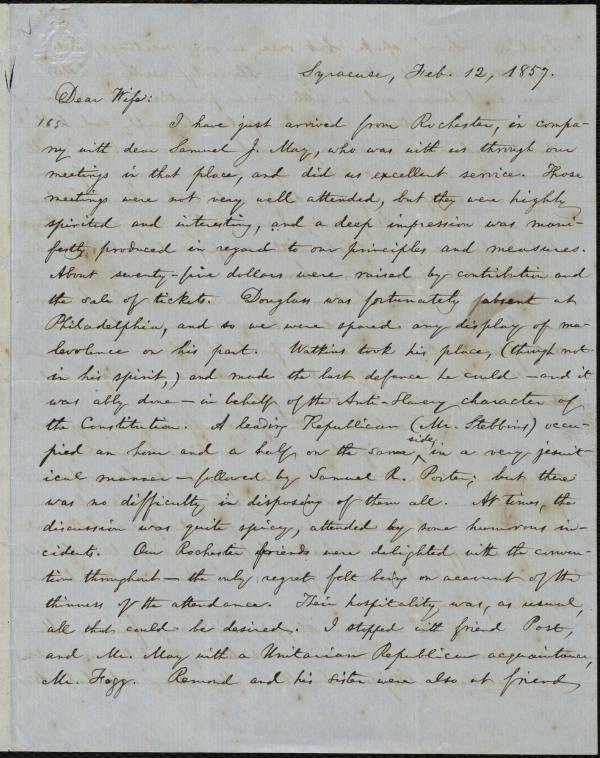 Syracuse, Feb. 12, 1857.
Dear Wife:
165
I have just arrived from Rochester, in compa-
ny with dear Samuel J. May, who was with us through our
meetings in that place, and did us excellent service. Those
meetings were not very well attended, but they were highly
spirited and interesting, and a deep impression was mani-
festly produced in regard to our principles and measures.
About seventy-five dollars were raised by contribution and
the sale of tickets. Douglass was fortunately absent at
Philadelphia, and so we were spared any display of ma-
levolence on his part. Watkins took his place, (though not
in his spirit,) and made the best defence he could — and it
was ably done — in behalf of the Anti-Slavery character of
the Constitution. A leading Republican (Mr. Stebbins) occu-
pied an hour and a half on the same side, in a very jesuit-
ical manner — followed by Samuel R. Porter; but there
was no difficulty in disposing of them all. At times, the
discussion was quite spicy, attended by some humorous in-
cidents. Our Rochester friends were delighted with the conven-
tion throughout — the only regret felt being on account of the
thinness of the attendance. Their hospitality was, as usual,
all that could be desired. I stopped with friend Post,
and Mr. May with a Unitarian Republican acquaintance,
Mr. Fogg. Remond and his sister were also at friend